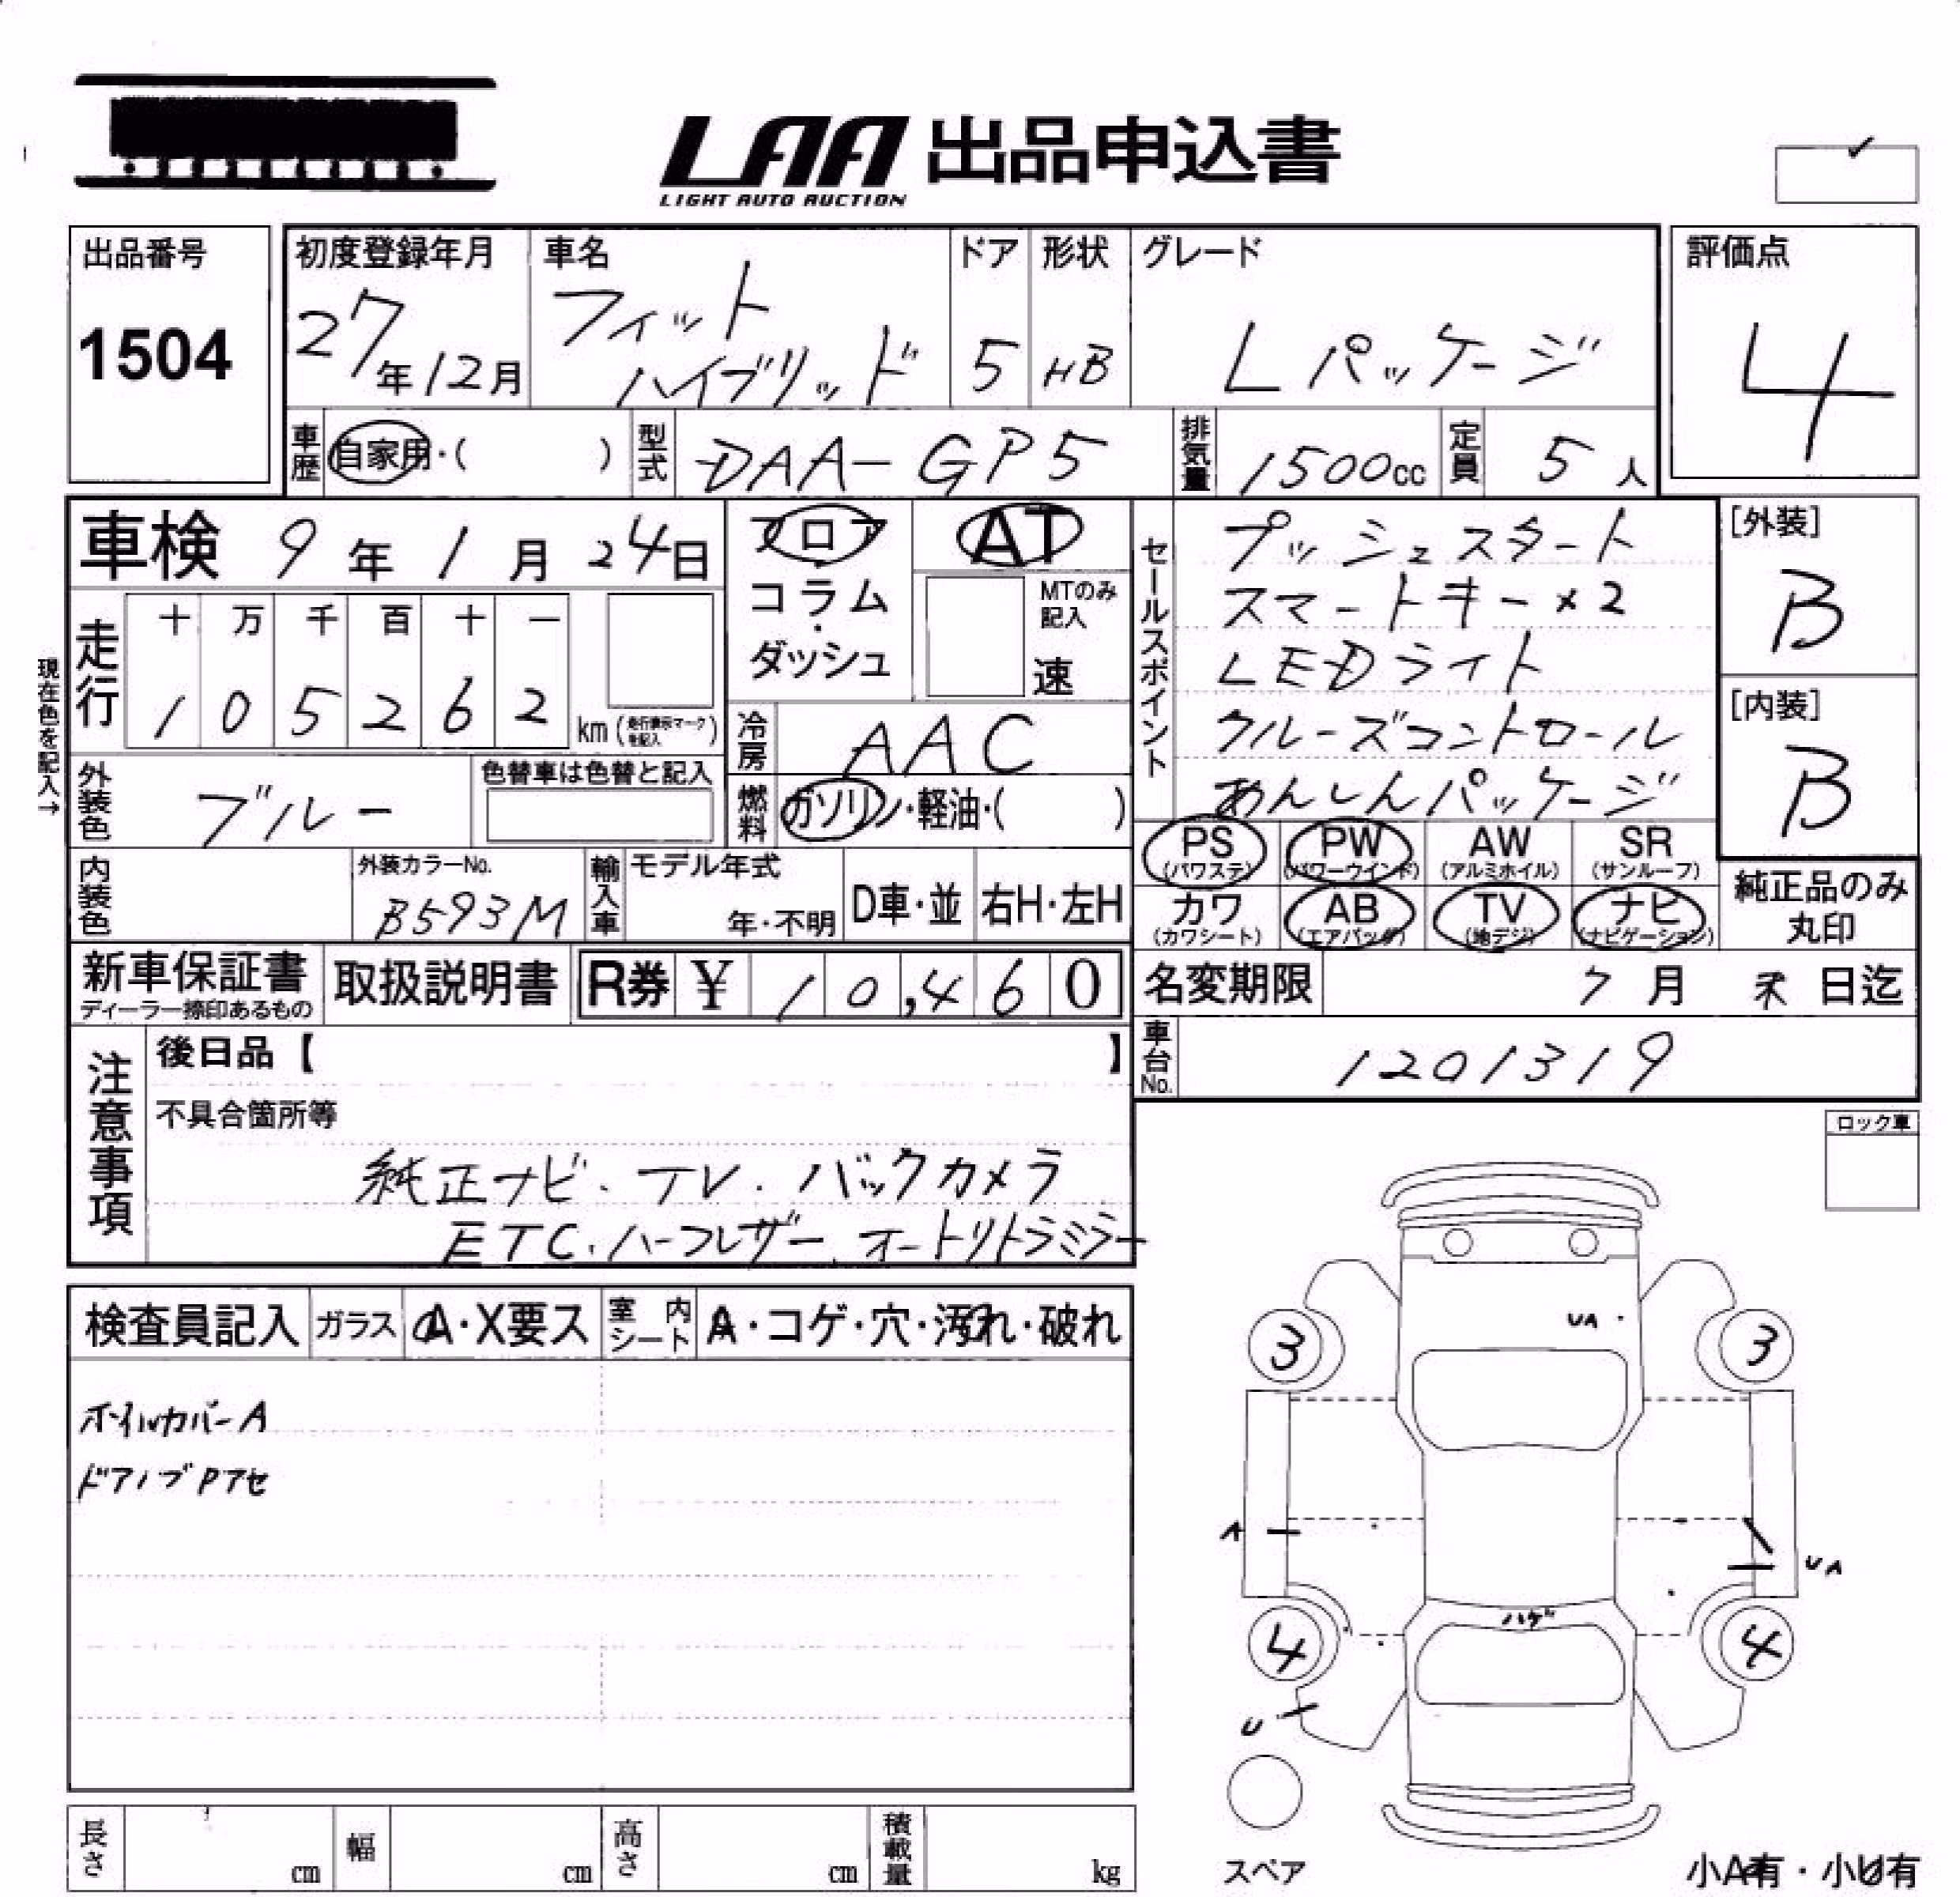 LAA 出品申込書
LIGHT AUTO AUCTION
出品番号
1504
初度登録年月
27年12月
車名
フィット
ハイブリッド
ドア
5
形状
HB
グレード
Lパッケージ
評価点
4
車歴 自家用・( )
型式 DAA-GP5
排気量 1500cc
定員 5人
車検 9年1月24日
フロア
コラム
・
ダッシュ
AT
MTのみ
記入
速
セールスポイント
プッシュスタート
スマートキー×2
LEDライト
クルーズコントロール
あんしんパッケージ
[外装]
B
[内装]
B
現在色を記入→
走行
十 万 千 百 十 一
1 0 5 2 6 2 km (走行表示マークを記入)
冷房 AAC
外装色 ブルー
色替車は色替と記入
燃料 ガソリン・軽油・( )
PS (パワステ)
PW (パワーウインド)
AW (アルミホイル)
SR (サンルーフ)
カワ (カワシート)
AB (エアバッグ)
TV (地デジ)
ナビ (ナビゲーション)
純正品のみ
丸印
内装色
外装カラーNo.
B593M
輸入車
モデル年式
年・不明
D車・並
右H・左H
新車保証書
ディーラー捺印あるもの
取扱説明書
R券 ¥ 10,460
名変期限 7月末日迄
車台No. 1201319
注意事項
後日品【 】
不具合箇所等
純正ナビ・TV・バックカメラ
ETC・ハーフレザー、オートリトラミラー
ロック車
検査員記入
ガラス A・X要ス
室内シート A・コゲ・穴・汚れ・破れ
ホイルカバーA
ドアノブPアセ
UA
3
3
A
UA
ハゲ
4
4
U
スペア
小A有・小U有
長さ cm
幅 cm
高さ cm
積載量 kg